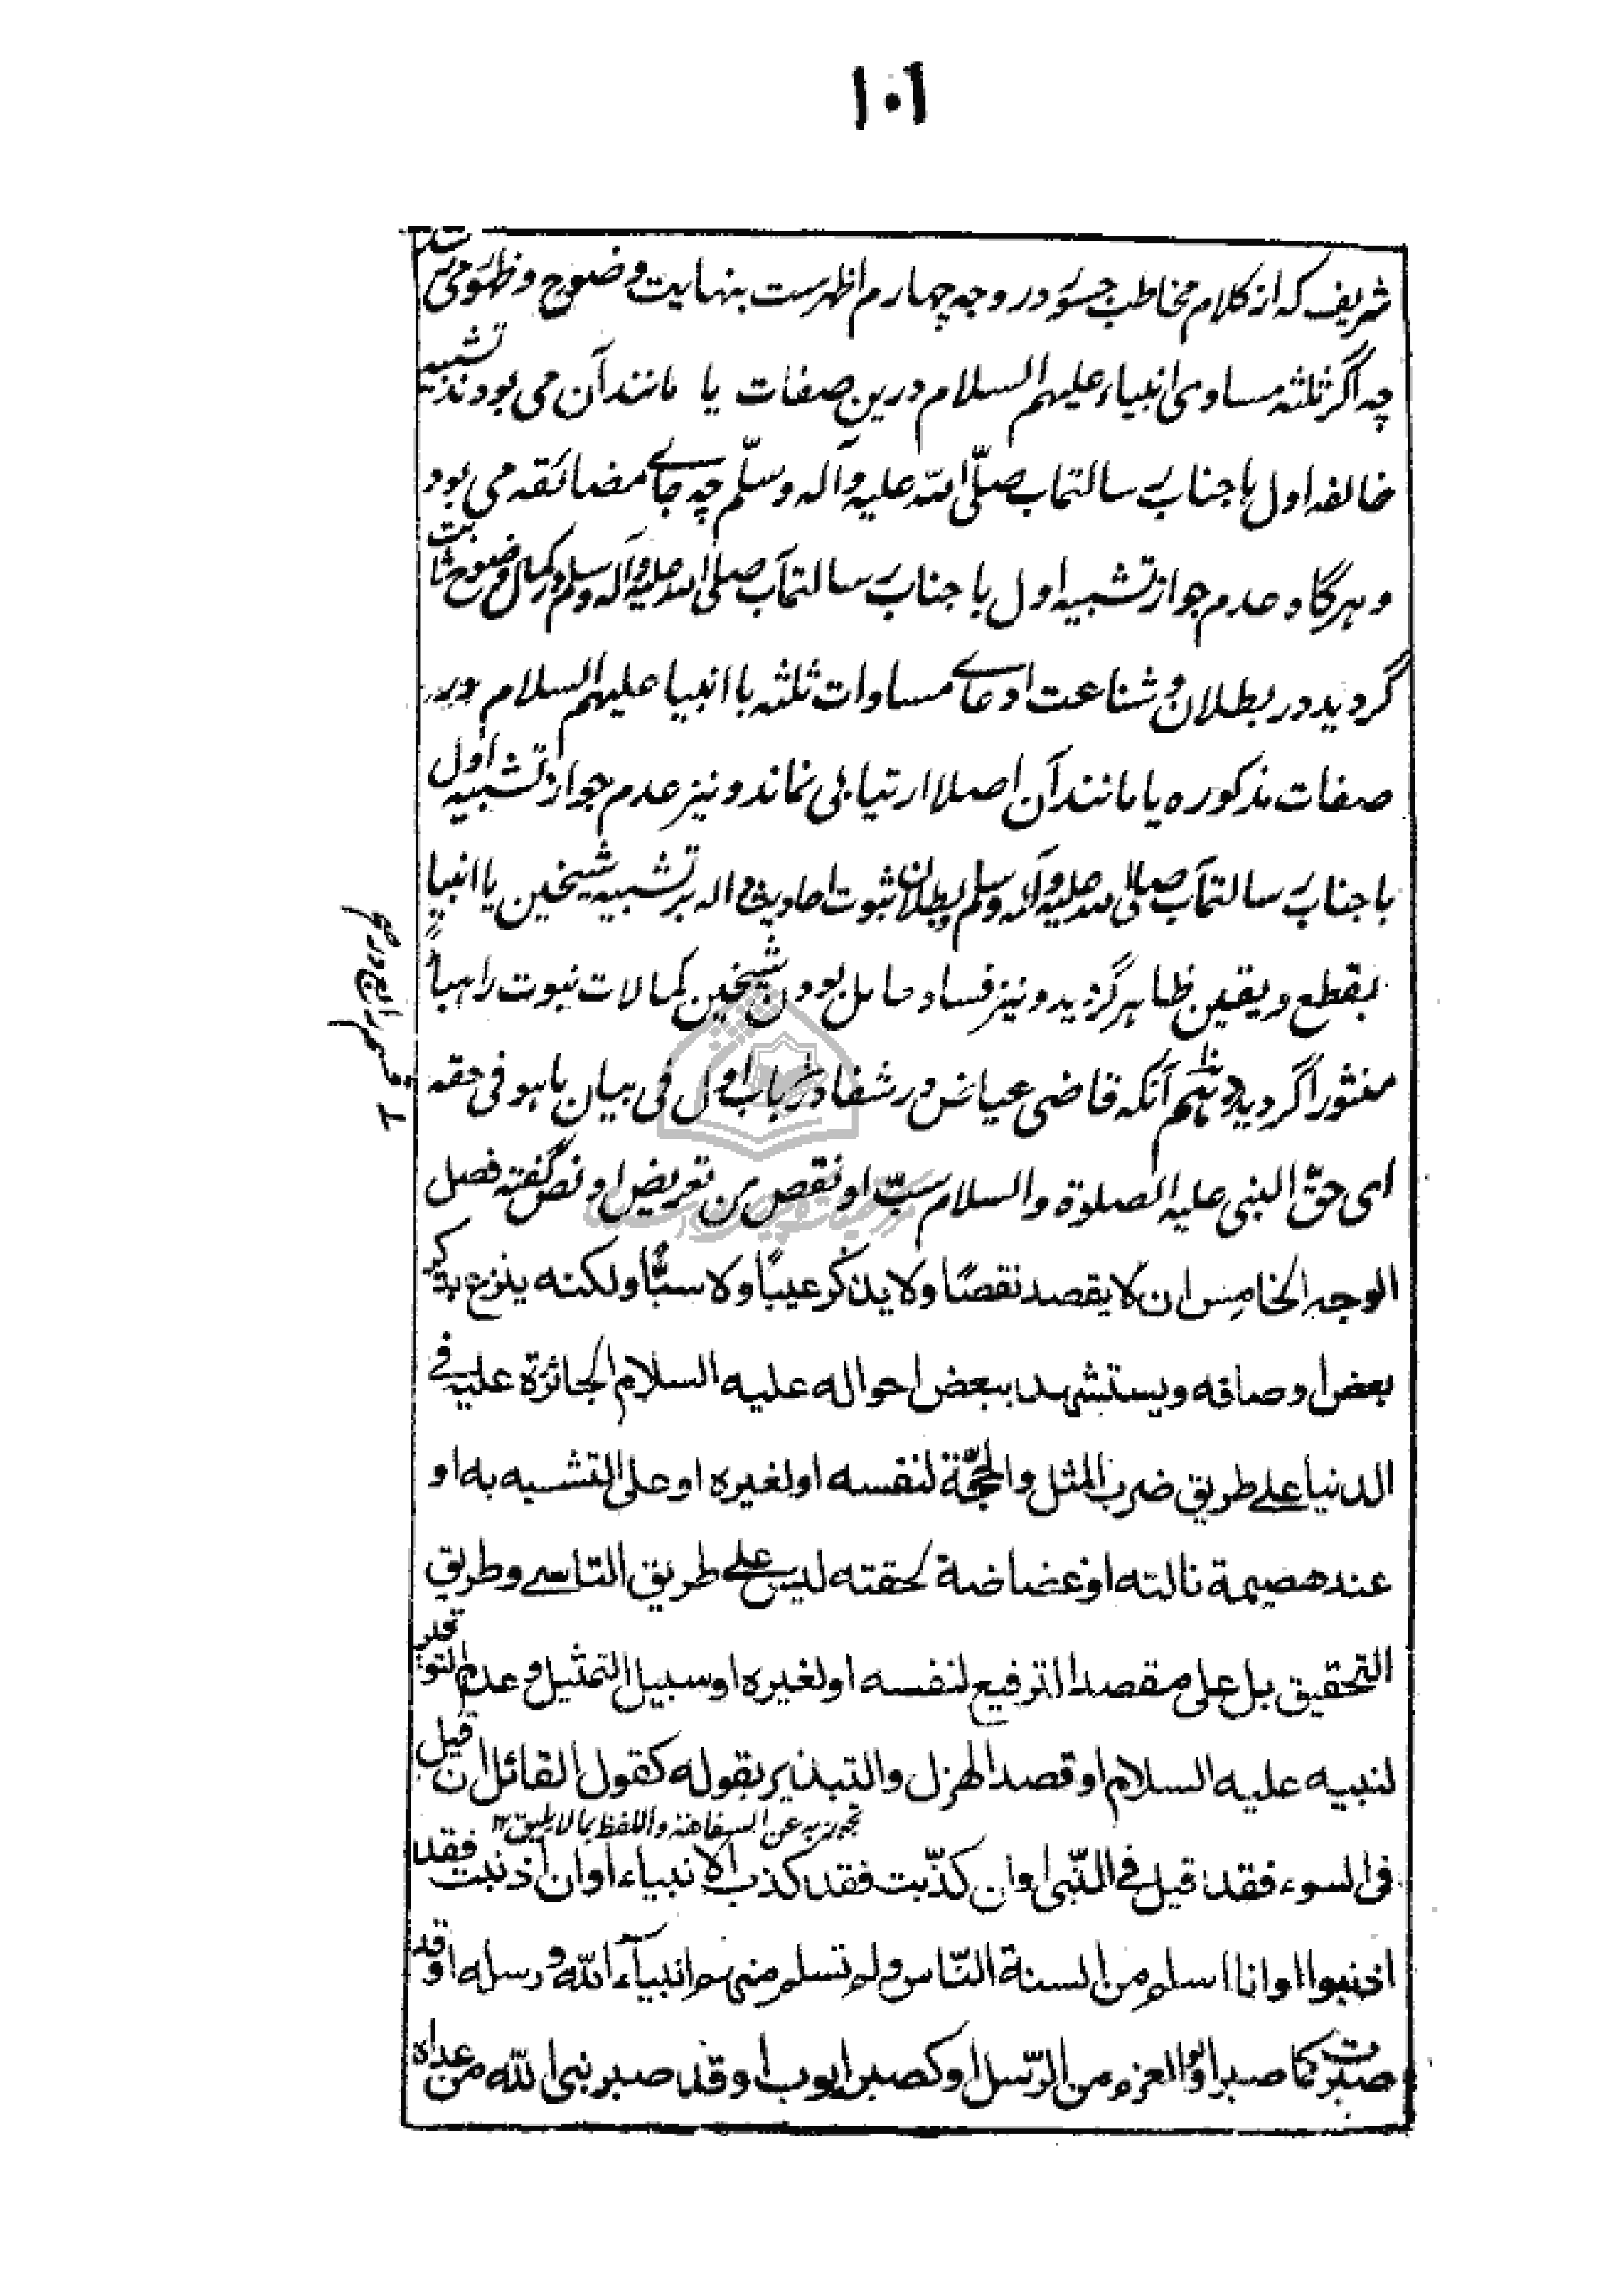 ۱۰۱
شریف که از کلام مخاطب جسور در وجه چهارم اظهرست بنهایت وضوح و ظهور می رسد
چه اگر ثلثه مساوی انبیاء علیهم السلام درین صفات یا مانند آن می بودند تشبیه
خالفه اول با جناب رسالتماب صلّی الله علیه وآله وسلّم چه جای مضائقه می بود
و هرگاه عدم جواز تشبیه اول با جناب رسالتمآب صلی الله علیه وآله وسلم در کمال وضوح ثابت
گردید در بطلان و شناعت ادعای مساوات ثلثه با انبیا علیهم السلام در
صفات مذکوره یا مانند آن اصلا ارتیابی نماند و نیز عدم جواز تشبیه اول
با جناب رسالتمآب صلی الله علیه وآله وسلم بطلان ثبوت احادیث داله بر تشبیه شیخین با انبیا
بقطع و یقین ظاهر گردید و نیز فساد حامل بودن شیخین کمالات نبوت را هباءً
منثورا گردید هشتم آنکه قاضی عیاض در شفا در باب اول فی بیان ما هو فی حقه
ای حقّ النبی علیه الصلوة والسلام سبّ او نقص من تعریض او نص گفته فصل
الوجه الخامس ان لا یقصد نقصًا ولا یذکر عیبًا ولا سبًّا ولکنه ینزع بذکر
بعض اوصافه ویستشهد ببعض احواله علیه السلام الجائزة علیه فی
الدنیا علی طریق ضرب المثل والحجّة لنفسه او لغیره او علی التشبه به او
عند هضیمة نالته او غضاضة لحقته لیس علی طریق التاسی وطریق
التحقیق بل علی مقصد الترفیع لنفسه او لغیره او سبیل التمثیل وعدم التوقیر
لنبیه علیه السلام او قصد الهزل والتبذیر بقوله کقول القائل ان قیل
تجوز به عن السفاهة واللفظ بما لا یلیق ۱۲
فی السوء فقد قیل فی النّبی او ان کذّبت فقد کذب الانبیاء او ان اذنبت فقد
اذنبوا او انا اسلم من السنة النّاس ولم تسلم منهم انبیآء الله ورسله او قد
صبرت کما صبر اولو العزم من الرّسل او کصبر ایوب او قد صبر نبی الله من عداه